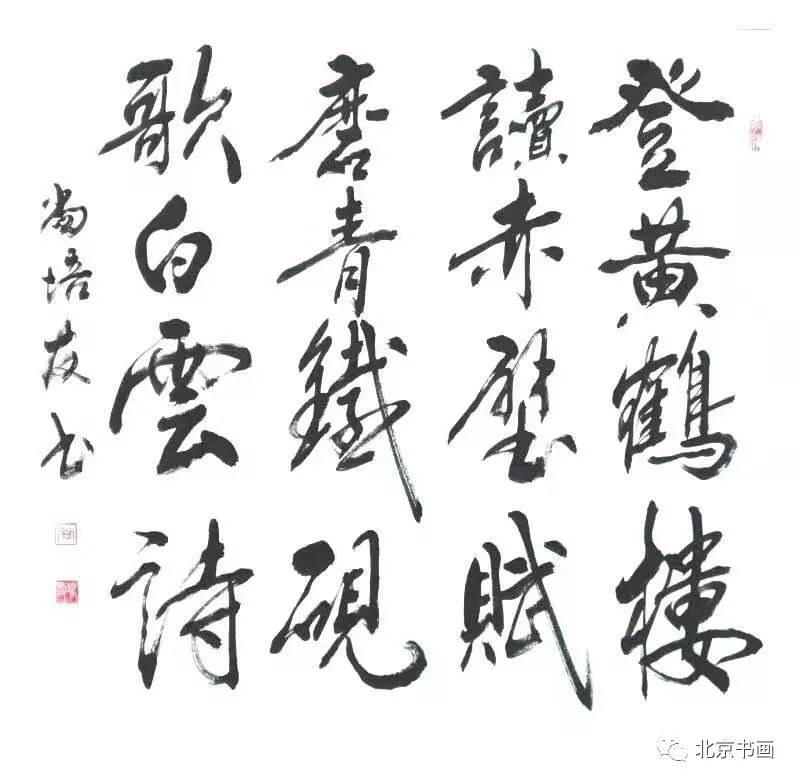 登黄鶴樓
讀赤壁賦
磨青鐵硯
歌白雲詩
尚培友书
北京书画